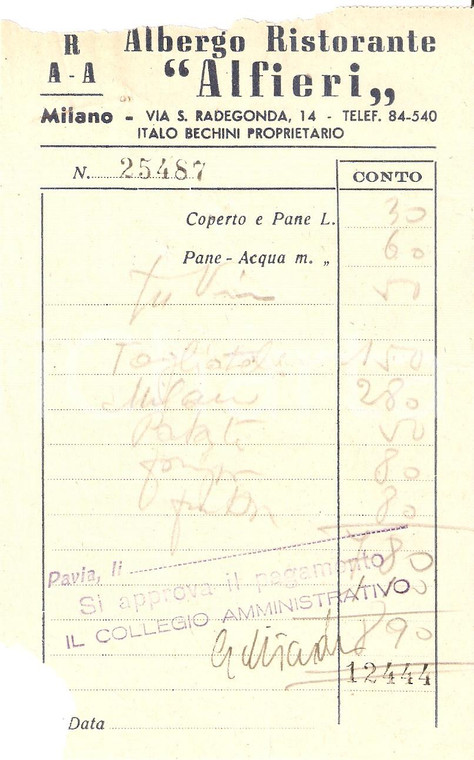 R Albergo Ristorante
A - A "Alfieri„
Milano - VIA S. RADEGONDA, 14 - TELEF. 84-540
ITALO BECHINI PROPRIETARIO
N. 25487 CONTO
Coperto e Pane L. 30
Pane - Acqua m. „ 60
Vino 50
150
Milan 280
Patate 50
80
80
780
Pavia, li
Si approva il pagamento
IL COLLEGIO AMMINISTRATIVO
890
12444
Data